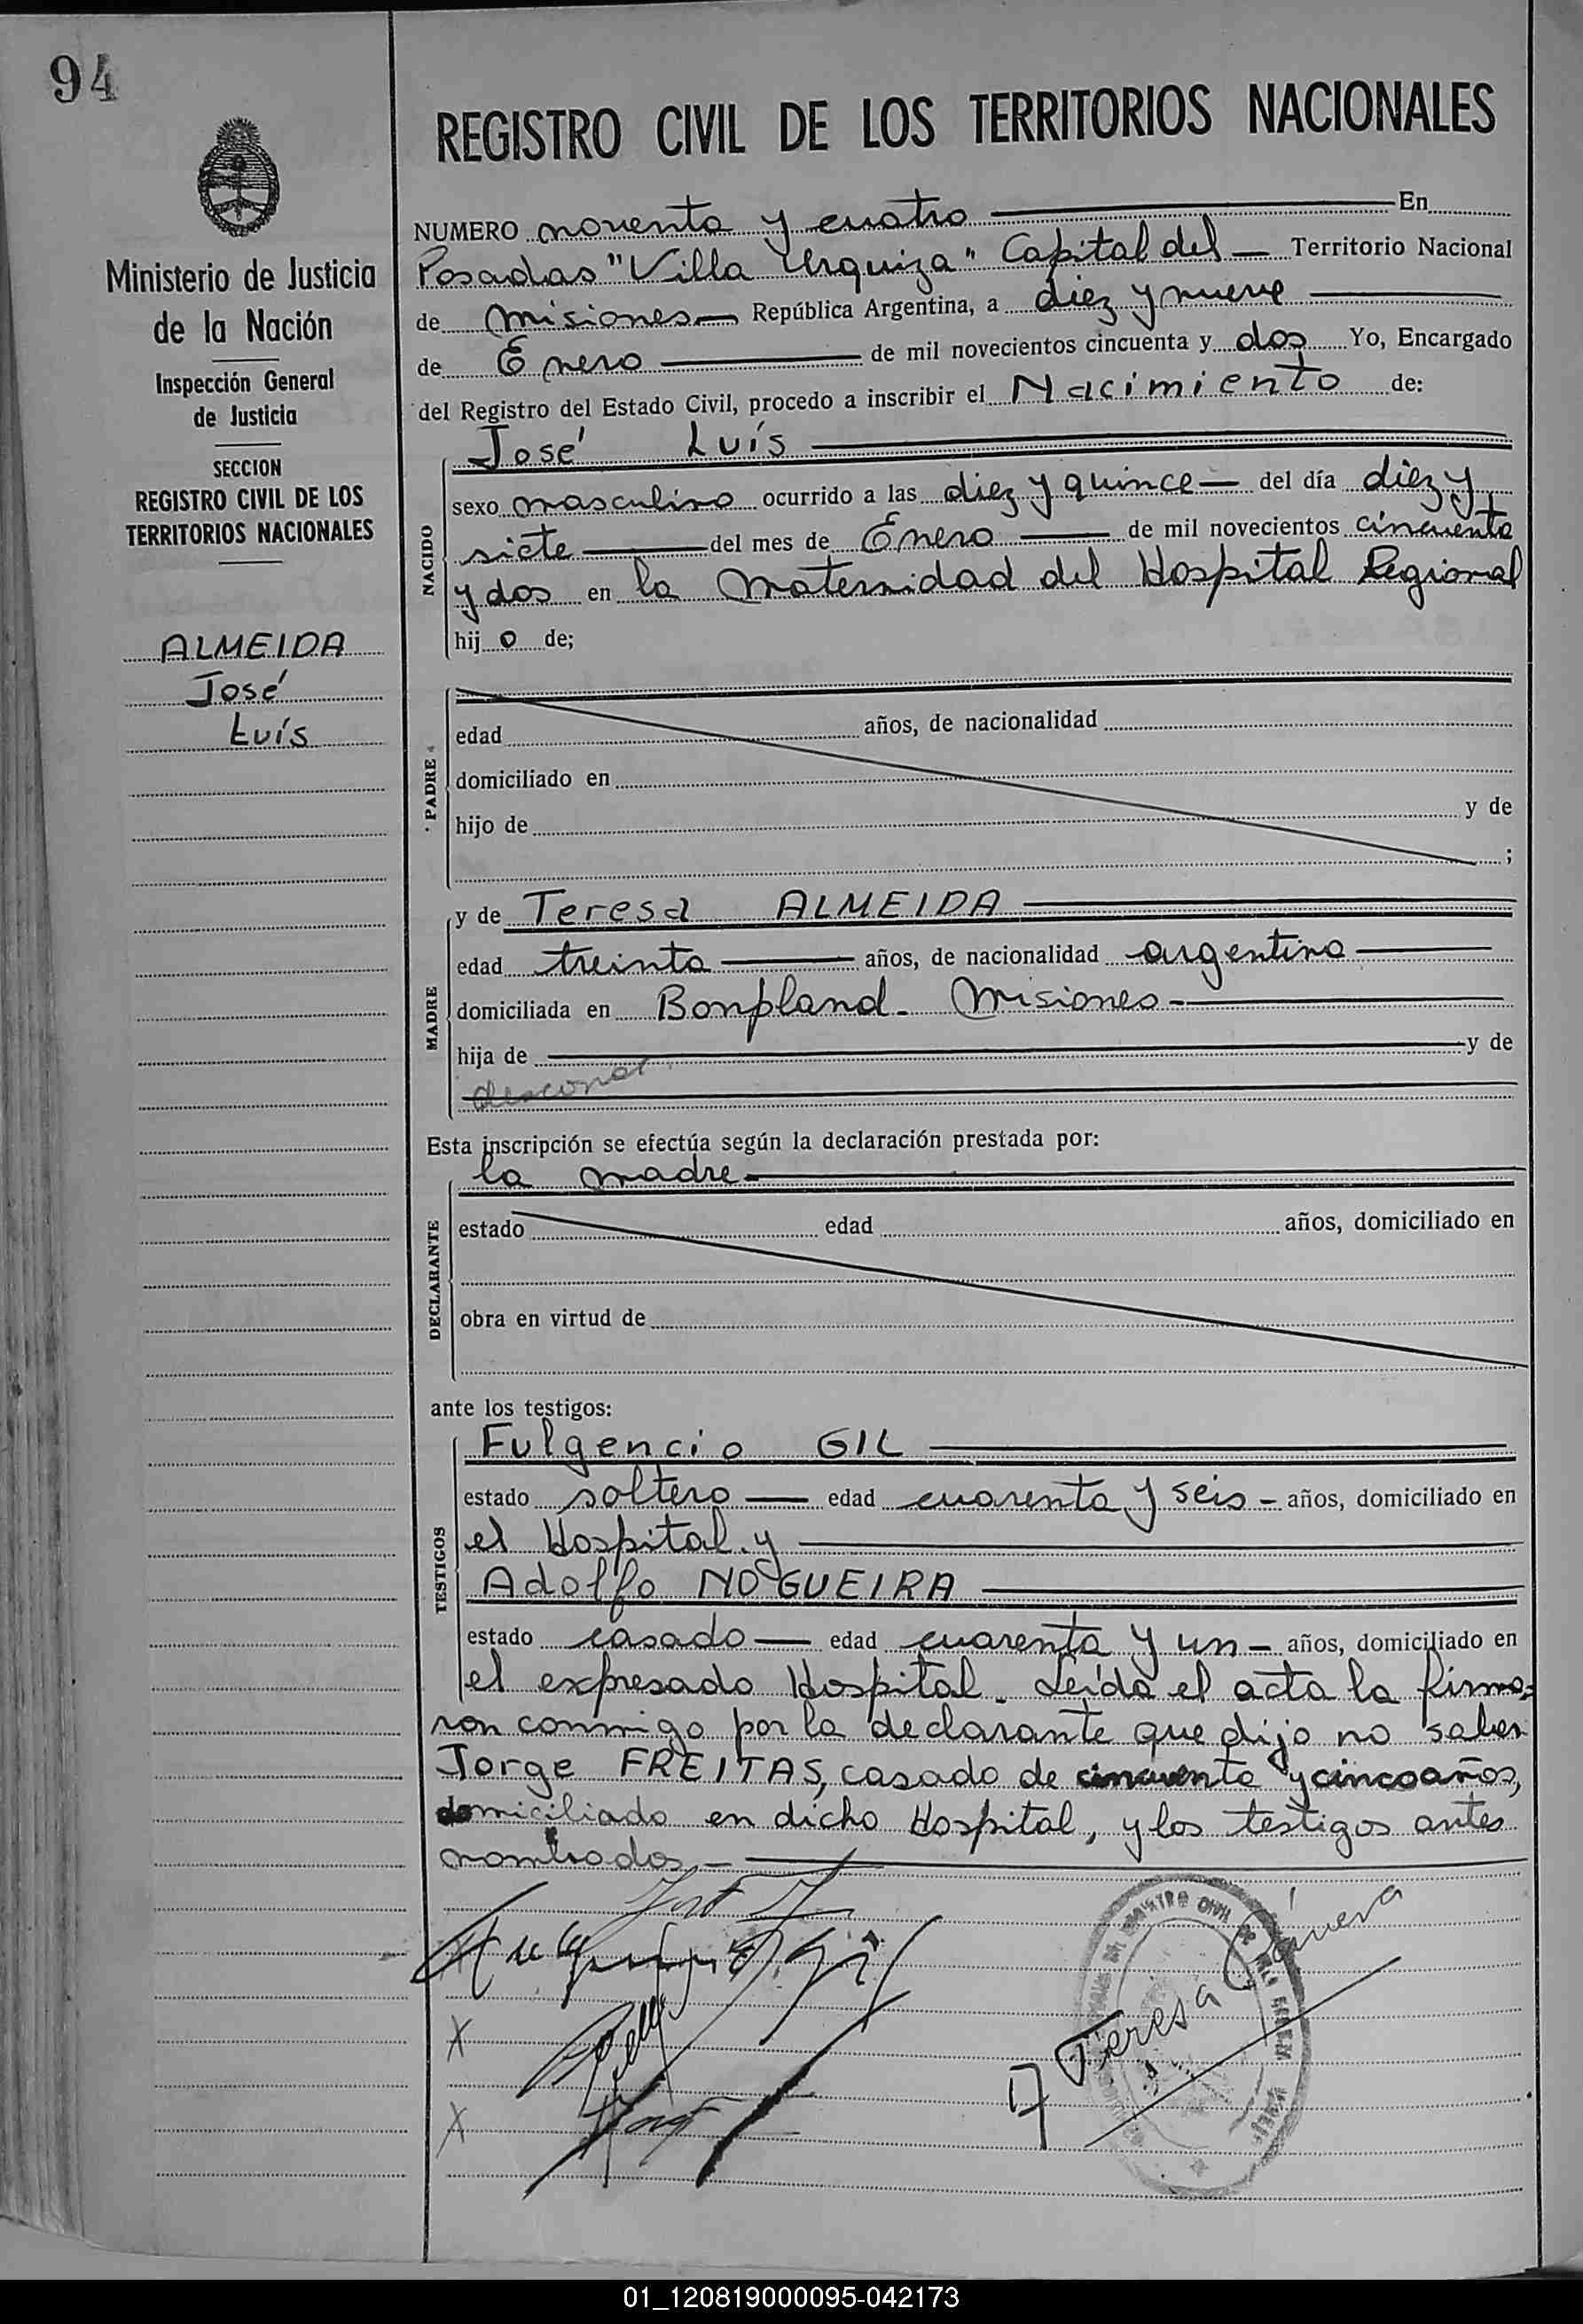 94
Ministerio de Justicia
de la Nación
Inspección General
de Justicia
SECCION
REGISTRO CIVIL DE LOS
TERRITORIOS NACIONALES
ALMEIDA
José
Luís
REGISTRO CIVIL DE LOS TERRITORIOS NACIONALES
NUMERO noventa y cuatro En
Posadas "Villa Urquiza" Capital del Territorio Nacional
de Misiones República Argentina, a diez y nueve
de Enero de mil novecientos cincuenta y dos Yo, Encargado
del Registro del Estado Civil, procedo a inscribir el Nacimiento de:
José Luís
NACIDO
sexo masculino ocurrido a las diez y quince del día diez y
siete del mes de Enero de mil novecientos cincuenta
y dos en la Maternidad del Hospital Regional
hij o de;
PADRE
edad años, de nacionalidad
domiciliado en
hijo de y de
;
y de Teresa ALMEIDA
MADRE
edad treinta años, de nacionalidad argentina
domiciliada en Bonpland - Misiones -
hija de y de
desconoc
Esta inscripción se efectúa según la declaración prestada por:
la madre
DECLARANTE
estado edad años, domiciliado en
obra en virtud de
ante los testigos:
TESTIGOS
Fulgencio GIL
estado soltero edad cuarenta y seis - años, domiciliado en
el Hospital y
Adolfo NOGUEIRA
estado casado edad cuarenta y un - años, domiciliado en
el expresado Hospital - Leída el acta la firma-
ron conmigo por la declarante que dijo no saber
Jorge FREITAS, casado de cincuenta y cinco años,
domiciliado en dicho Hospital, y los testigos antes
nombrados. -
Teresa
01_120819000095-042173